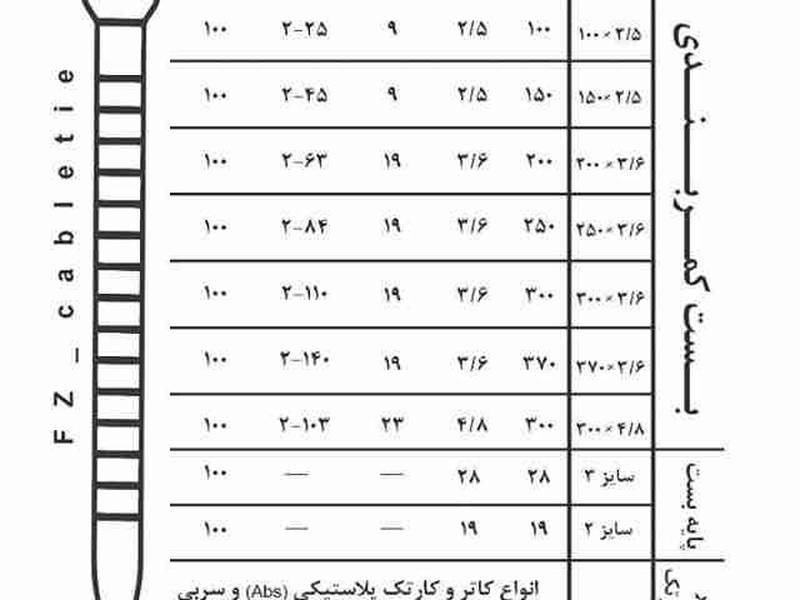 ۱۰۰×۲/۵ ۱۰۰ ۲/۵ ۹ ۲-۲۵ ۱۰۰
۱۵۰×۲/۵ ۱۵۰ ۲/۵ ۹ ۲-۴۵ ۱۰۰
۲۰۰×۳/۶ ۲۰۰ ۳/۶ ۱۹ ۲-۶۳ ۱۰۰
۲۵۰×۳/۶ ۲۵۰ ۳/۶ ۱۹ ۲-۸۴ ۱۰۰
۳۰۰×۳/۶ ۳۰۰ ۳/۶ ۱۹ ۲-۱۱۰ ۱۰۰
۳۷۰×۳/۶ ۳۷۰ ۳/۶ ۱۹ ۲-۱۴۰ ۱۰۰
۳۰۰×۴/۸ ۳۰۰ ۴/۸ ۲۳ ۲-۱۰۳ ۱۰۰
بست کمربندی
سایز ۳ ۲۸ ۲۸ — — ۱۰۰
سایز ۲ ۱۹ ۱۹ — — ۱۰۰
پایه بست
انواع کاتر و کارتک پلاستیکی (Abs) و سربی
FZ – cabletie